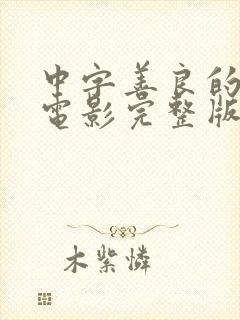 中字善良的
电影完整版
木紫怜